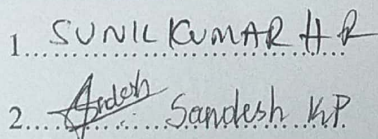 1. SUNIL KUMAR H R
2. Sandesh K.P.